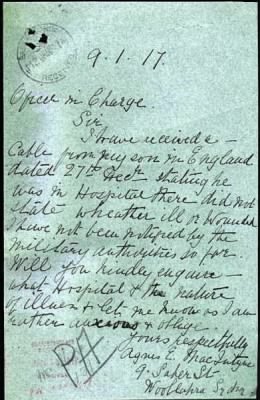 9.1.17.
Officer in Charge
Sir
I have received a -
Cable from my son in England
dated 27th Dec stating he
was in Hospital there did not
state wheather ill or Wounded
I have not been notified by the
military authorities so far.
Will you kindly enquire -
what Hospital & the nature
of illness & let me know as I am
rather anxious & oblige.
Yours respectfully
Agnes E. MacIntyre
9. St
Woollahra Sydney